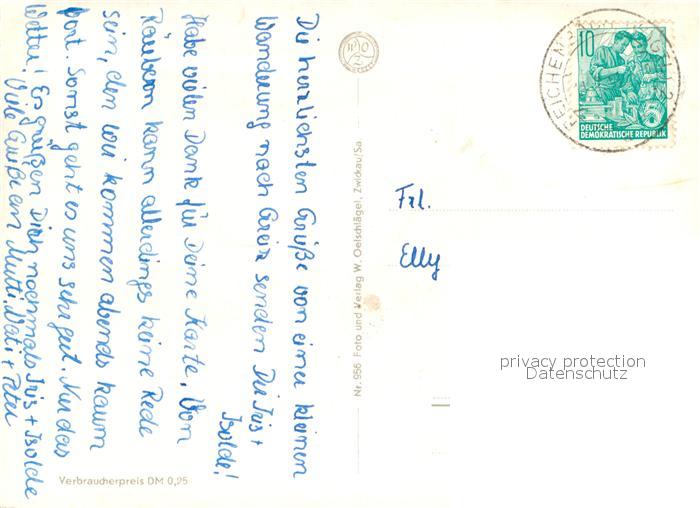 Die herzlichsten Grüße von einer kleinen
Wanderung nach Greiz senden Dir Iris +
Isolde!
Habe vielen Dank für Deine Karte. Von
Räubern kann allerdings keine Rede
sein, den wir kommen abends kaum
fort. Sonst geht es uns sehr gut. Nur das
Wetter! Es grüßen Dich nochmals Iris + Isolde
Viele Grüße an Mutti, Vati + Peter
Verbraucherpreis DM 0,25
Nr. 956 Foto und Verlag W. Oelschlägel, Zwickau/Sa.
WO
Z
REICHEN
10
5
DEUTSCHE
DEMOKRATISCHE REPUBLIK
Frl.
Elly
privacy protection
Datenschutz